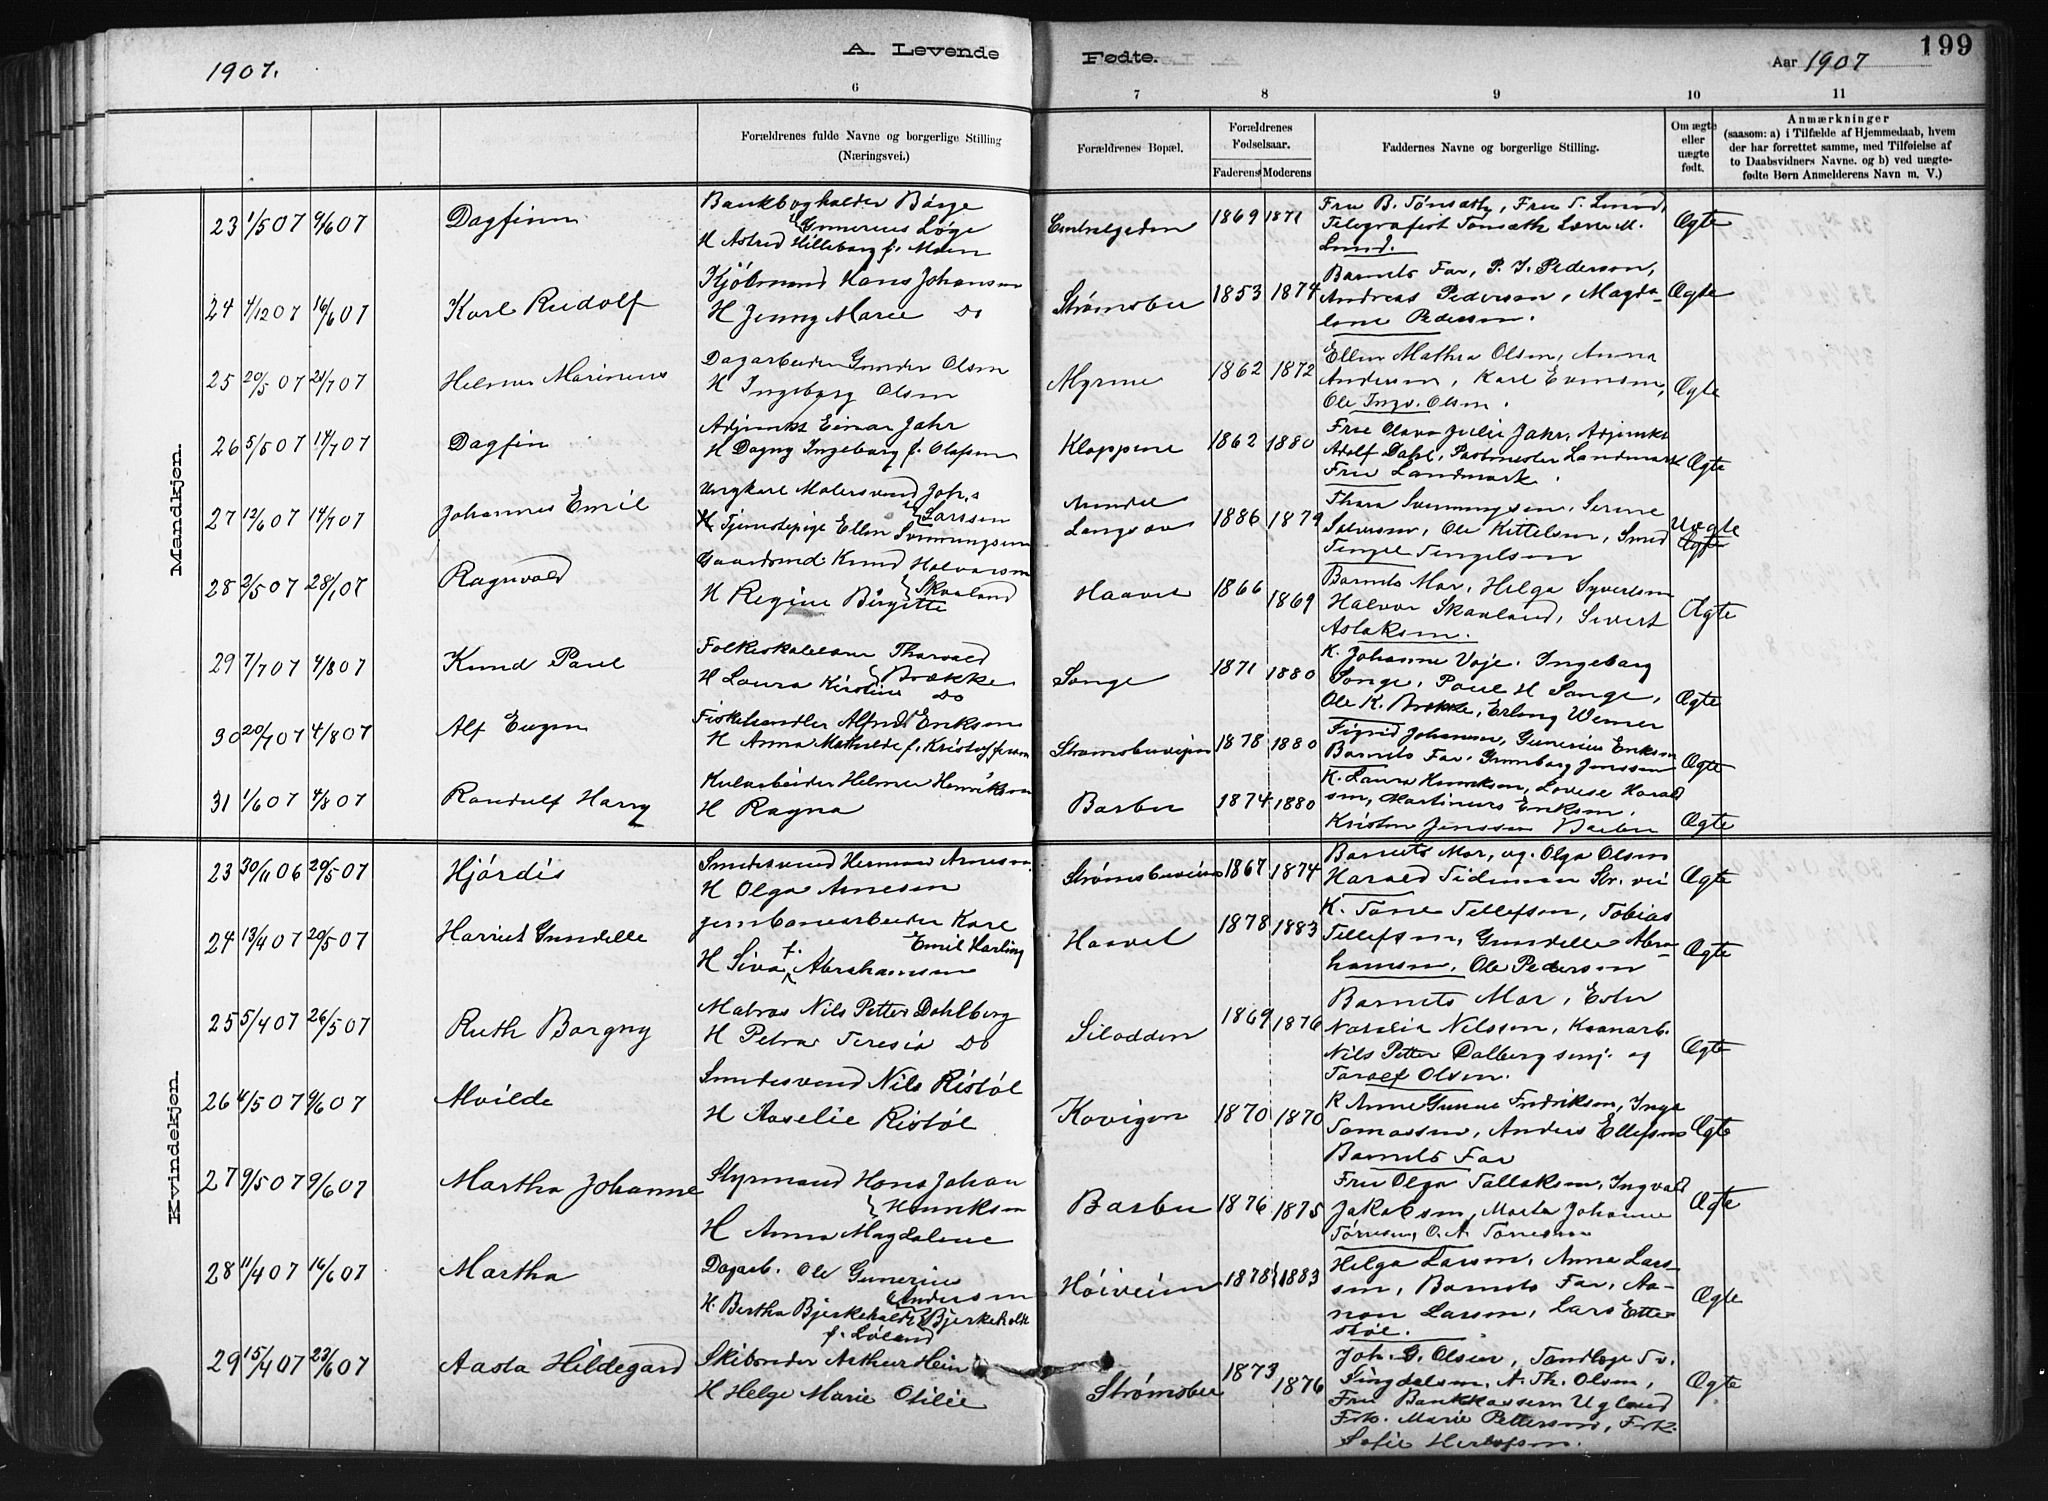 1907.
A. Levende
Fødte.
Aar 1907
199
6
7
8
9
10
11
Forældrenes fulde Navne og borgerlige Stilling
(Næringsvei.)
Forældrenes Bopæl.
Forældrenes
Fødselsaar.
Faderens Moderens
Faddernes Navne og borgerlige Stilling.
Om ægte
eller
uægte
født.
Anmærkninger
(saasom: a) i Tilfælde af Hjemmedaab, hvem
der har forrettet samme, med Tilføielse af
to Daabsvidners Navne. og b) ved uægte-
fødte Børn Anmelderens Navn m. V.)
Mandkjøn.
23 1/5 07 9/6 07 Dagfinn
Bankbogholder Børge
Gunerius Løge
H Astrid Hilleborg f. Moen
1869 1871
Fru B. Tønseth, Fru T. Lund,
Telegrafist Tønseth Lærer M.
Lund.
Ægte
24 4/12 07 16/6 07 Karl Rudolf
Kjøbmand Hans Johansen
H Jenny Marie Do
Strømsbu
1853 1874
Barnets Far, P. J. Pederson,
Andreas Pederson, Magda-
lene Pederson.
Ægte
25 20/5 07 21/7 07 Helmer Marinius
Dagarbeider Gunder Olsen
H Ingeborg Olsen
Myrene
1862 1872
Ellen Mathea Olsen, Anna
Anderson, Karl Evensen,
Ole Ingv. Olsen.
Ægte
26 5/5 07 14/7 07 Dagfin
Adjunkt Einar Jahr
H Dagny Ingeborg f. Olafsen
Kloppene
1862 1880
Frue Olava Julie Jahr, Adjunkt
Adolf Dahl, Postmester Landmark
Fru Landmark.
Ægte
27 12/6 07 14/7 07 Johannes Emil
Ungkarl Malersvend Joh.s
Larsen
Tjenestepige Ellen Svenningsen
Arendal
Langsæv
1886 1879
Thora Svenningsen, Serine
Salvesen, Ole Kittelsen, Smed
Tengel Tengelsen
Uægte
28 2/5 07 28/7 07 Ragnvald
Gaardmd. Knud Halvorsen
Skvaland
H Regine Birgitte
Haavet
1866 1869
Barnets Mor, Helga Syvertsen
Halvor Skavland, Sivert
Aslaksen.
Ægte
29 7/7 07 4/8 07 Knud Paul
Folkeskolelærer Thorvald
Brække
H Laura Kirstine Do
Songe
1871 1880
K. Johanne Voje, Ingeborg
Songe, Paul H Songe,
Ole K. Brække, Erling Werner
Ægte
30 20/7 07 4/8 07 Alf Eugen
Fiskehandler Alfred Eriksen
H Anna Mathilde f. Kristoffersen
Strømsbuveien
1878 1880
Sigrid Johansen, Gunerius Eriksen
Barnets Far, Gunborg Jenssen
Ægte
31 1/6 07 4/8 07 Randulf Harry
Kularbeider Helmer Henriksen
H Ragna
Barbu
1874 1880
K. Laura Henriksen, Lovise Harald
sen, Martinius Eriksen.
Kristen Jenssen Barbu
Ægte
Kvindekjøn.
23 30/11 06 20/5 07 Hjørdis
Smedesvend Herman Arnesen
H Olga Arnesen
Strømsbuveien
1867 1874
Barnets Mor, og Olga Olsen
Harald Tideman Str. vei
Ægte
24 13/4 07 20/5 07 Harriet Gundelle
Jernbanearbeider Karl
Emil Harling
H Siva f. Abrahamsen
Haavet
1878 1883
K. Tone Tellefsen, Tobias
Tellefsen, Gundelle Abra-
hamsen, Ole Pederson
Ægte
25 5/4 07 26/5 07 Ruth Borgny
Matros Nils Petter Dahlberg
H Petra Teresia Do
Silodden
1869 1876
Barnets Mor, Ester
Natalia Nilssen, Kranarb.
Nils Petter Dalberg senj. og
Taralf Olsen.
Ægte
26 4/5 07 9/6 07 Alvilde
Smedesvend Nils Ristøl
H Aaselie Ristøl
Kovigen
1870 1870
K Anne Gurine Fredriksen, Inga
Tomassen, Anders Ellefsen
Barnets Far
Ægte
27 9/5 07 9/6 07 Martha Johanne
Styrmand Hans Johan
Henriksen
H Anna Magdalene
Barbu
1876 1875
Fru Olga Tallaksen, Ingvald
Jakobsen, Marta Johanne
Tørresen, O. A. Tørresen
Ægte
28 11/4 07 16/6 07 Martha
Dagarb. Ole Gunerius
Andersen
H. Bertha Bjerkeholt Bjerkeholt
f. Løland
Høiveien
1878 1883
Helga Larsen, Anna Lars-
sen, Barnets Far, Aa-
non Larsen, Lars Ette-
støl.
Ægte
29 15/4 07 23/6 07 Aasta Hildegard
Skibsreder Arthur Hein
H Helge Marie Otilie
Strømsbu
1873 1876
Joh. G. Olsen, Tandlæge Tv.
Singdalsen, A. Th. Olsen,
Fru Bankkasserer Ugland
Frk. Marie Petterson, Frk.
Sofie Herlofsen.
Ægte